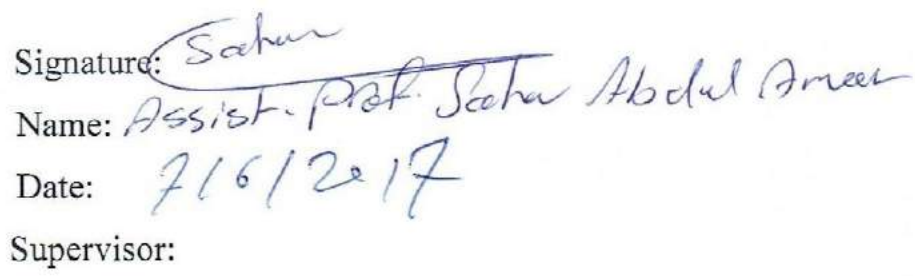 Signature: Sahar
Name: Assist. Prof. Sahar Abdul Ameer
Date: 7/6/2017
Supervisor: